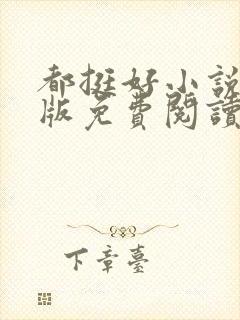 都挺好小說
版免費閱讀
下章臺